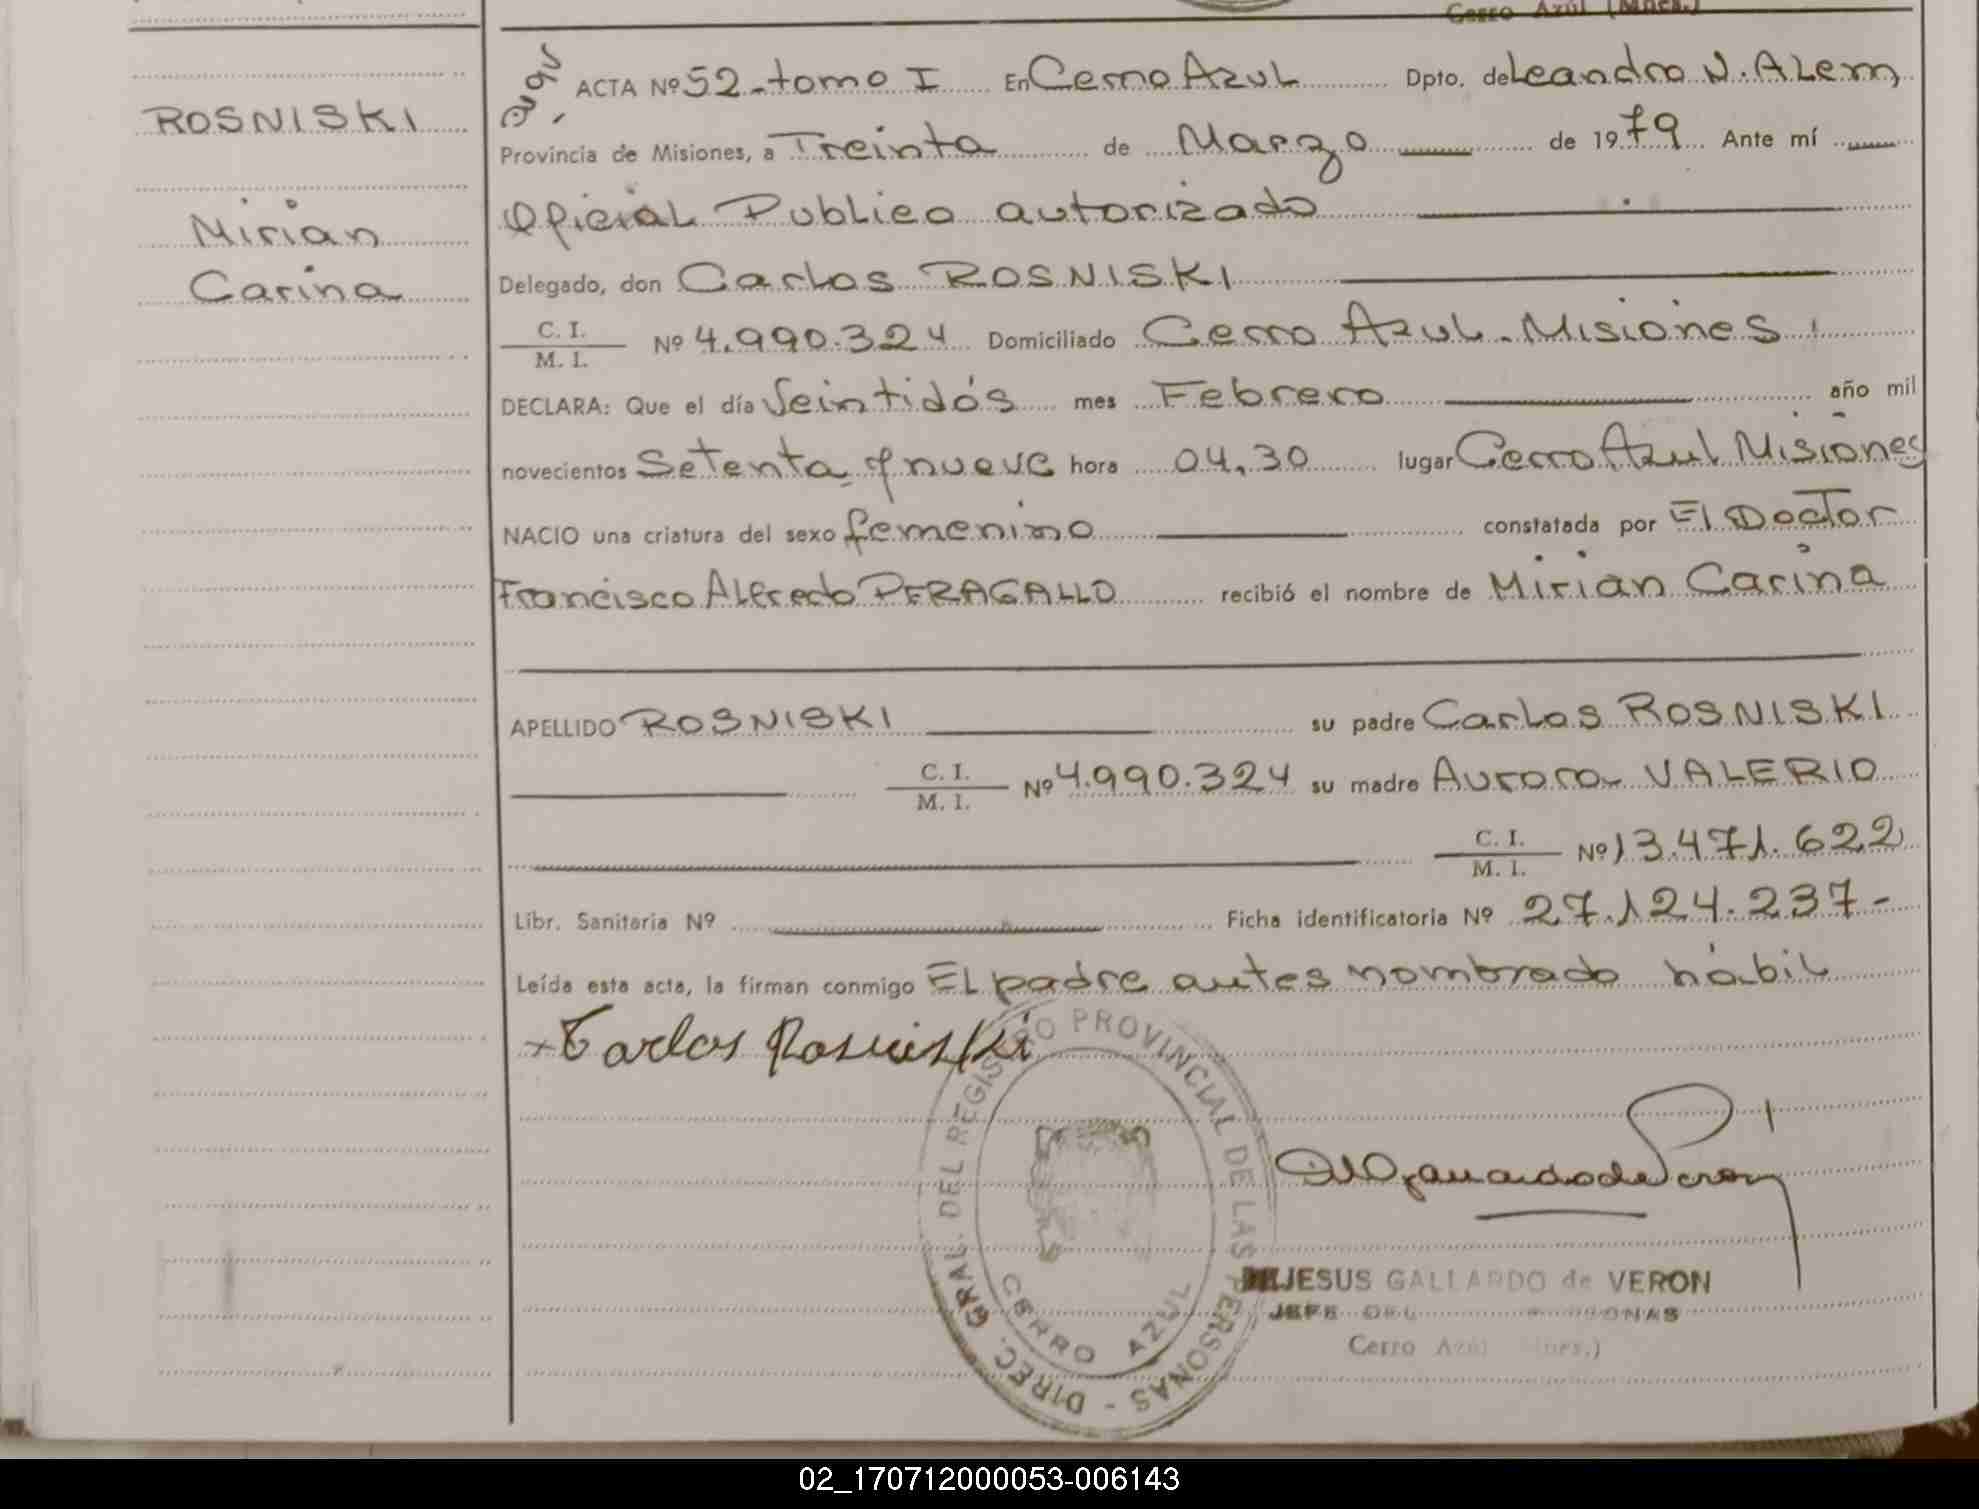 Cerro Azúl (Mnes.)
ROSNISKI
Mirian
Carina
ACTA Nº 52 - tomo I En Cerro Azul Dpto. de Leandro N. ALem,
Provincia de Misiones, a Treinta de Marzo de 1979 Ante mí
Oficial Publico autorizado
Delegado, don Carlos ROSNISKI
C. I.
M. I. Nº 4.990.324 Domiciliado Cerro Azul - Misiones,
DECLARA: Que el día Veintidós mes Febrero año mil
novecientos Setenta y nueve hora 04,30 lugar Cerro Azul Misiones
NACIO una criatura del sexo femenino constatada por El Doctor
Francisco Alfredo PERAGALLO recibió el nombre de Mirian Carina
APELLIDO ROSNISKI su padre Carlos ROSNISKI
C. I.
M. I. Nº 4.990.324 su madre Aurora VALERIO
C. I.
M. I. Nº 13.471.622
Libr. Sanitaria Nº Ficha identificatoria Nº 27.124.237-
Leída esta acta, la firman conmigo El padre antes nombrado hábil
x Carlos Rosniski
DIREC. GRAL. DEL REGISTRO PROVINCIAL DE LAS PERSONAS -
CERRO AZUL
JESUS GALLARDO de VERON
JEFE DEL
Cerro Azúl
02_170712000053-006143